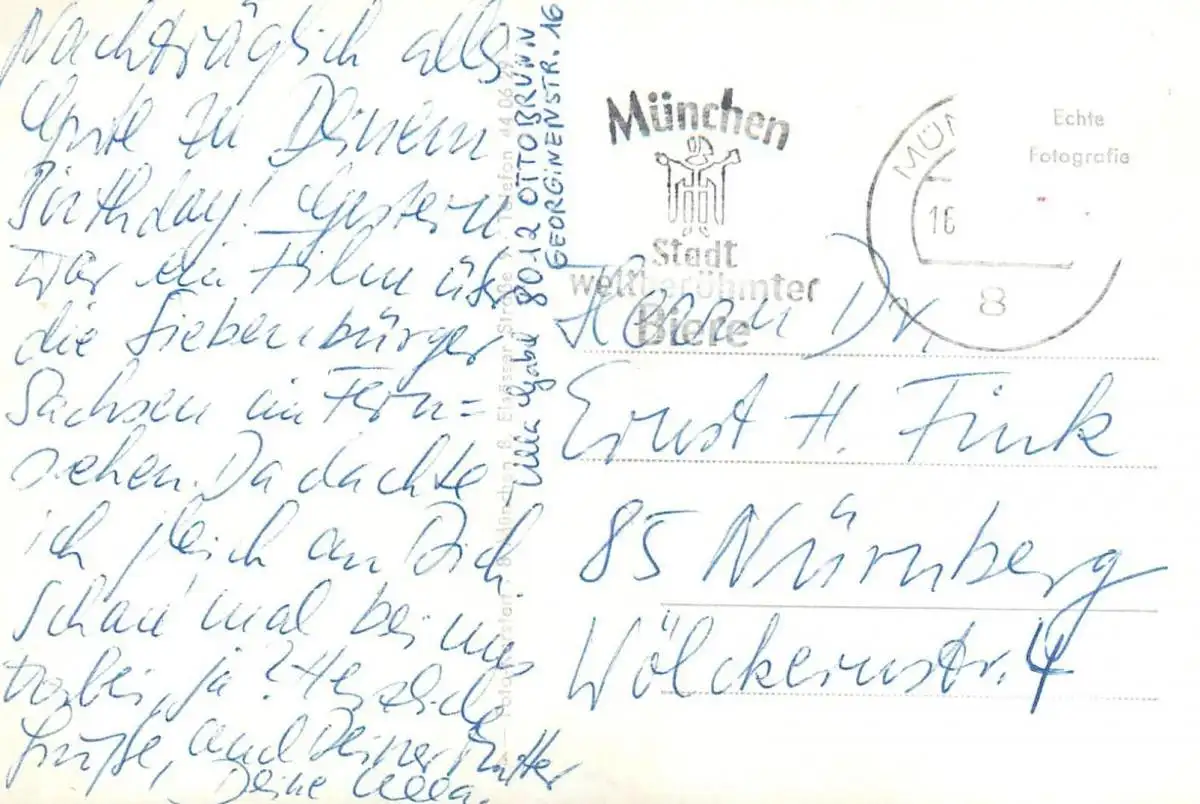 Nachträglich alles
Gute zu Deinem
Birthday! Gestern
war ein Film über
die Siebenbürger
Sachsen im Fern=
sehen. Da dachte
ich gleich an Dich.
Schau mal bei uns
vorbei, ja? Herzliche
Grüße, auch Deiner Mutter
Deine Ulla.
Ulla Gabel 8012 OTTOBRUNN
GEORGINENSTR. 16
München 8, Elsässer Straße Telefon 44 06
München
Stadt
weltberühmter
Biere
MÜN
16
8
Echte
Fotografie
Herrn Dr.
Ernst H. Fink
85 Nürnberg
Wölckernstr. 4